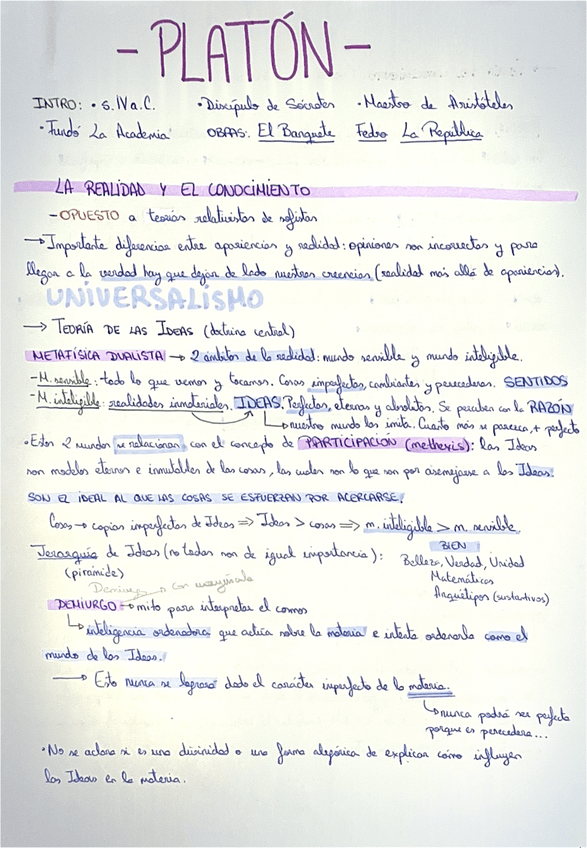 - PLATÓN -
INTRO: • s. IV a.C. • Discípulo de Sócrates • Maestro de Aristóteles
• Fundó La Academia OBRAS: El Banquete Fedro La República
LA REALIDAD Y EL CONOCIMIENTO
- OPUESTO a teorías relativistas de sofistas
→ Importante diferenciar entre apariencias y realidad: opiniones son incorrectas y para
llegar a la verdad hay que dejar de lado nuestras creencias (realidad más allá de apariencias).
UNIVERSALISMO
→ TEORÍA DE LAS IDEAS (doctrina central)
METAFÍSICA DUALISTA → 2 ámbitos de la realidad: mundo sensible y mundo inteligible.
- M. sensible: todo lo que vemos y tocamos. Cosas imperfectas, cambiantes y perecederas. SENTIDOS
- M. inteligible: realidades inmateriales. IDEAS. Perfectas, eternas y absolutas. Se perciben con la RAZÓN
↳ nuestro mundo las imita. Cuanto más se parezca, + perfecto
• Estos 2 mundos se relacionan con el concepto de PARTICIPACIÓN (methexis): las Ideas
son modelos eternos e inmutables de las cosas, las cuales son lo que son por asemejarse a las Ideas.
SON EL IDEAL AL QUE LAS COSAS SE ESFUERZAN POR ACERCARSE.
Cosas → copias imperfectas de Ideas ⇒ Ideas > cosas ⇒ m. inteligible > m. sensible.
Jerarquía de Ideas (no todas son de igual importancia): BIEN
(pirámide) Belleza, Verdad, Unidad
Matemáticas
Arquetipos (sustantivos)
DEMIURGO → mito para interpretar el cosmos
↳ inteligencia ordenadora que actúa sobre la materia e intenta ordenarla como el
mundo de las Ideas.
→ Esto nunca se logrará dado el carácter imperfecto de la materia.
↳ nunca podrá ser perfecta
porque es perecedera...
• No se aclara si es una divinidad o una forma alegórica de explicar cómo influyen
las Ideas en la materia.